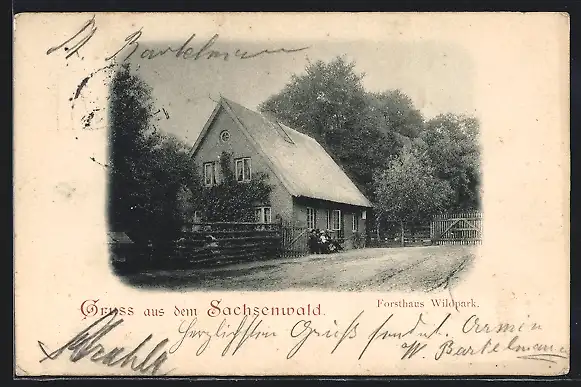 W. Bartelmann
Gruss aus dem Sachsenwald.
Forsthaus Wildpark.
Herzlichsten Gruß sendet Armin
W. Bartelmann